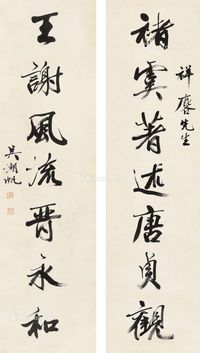 褚虞著述唐贞觀
祥麐先生
王謝風流晉永和
吳湖帆